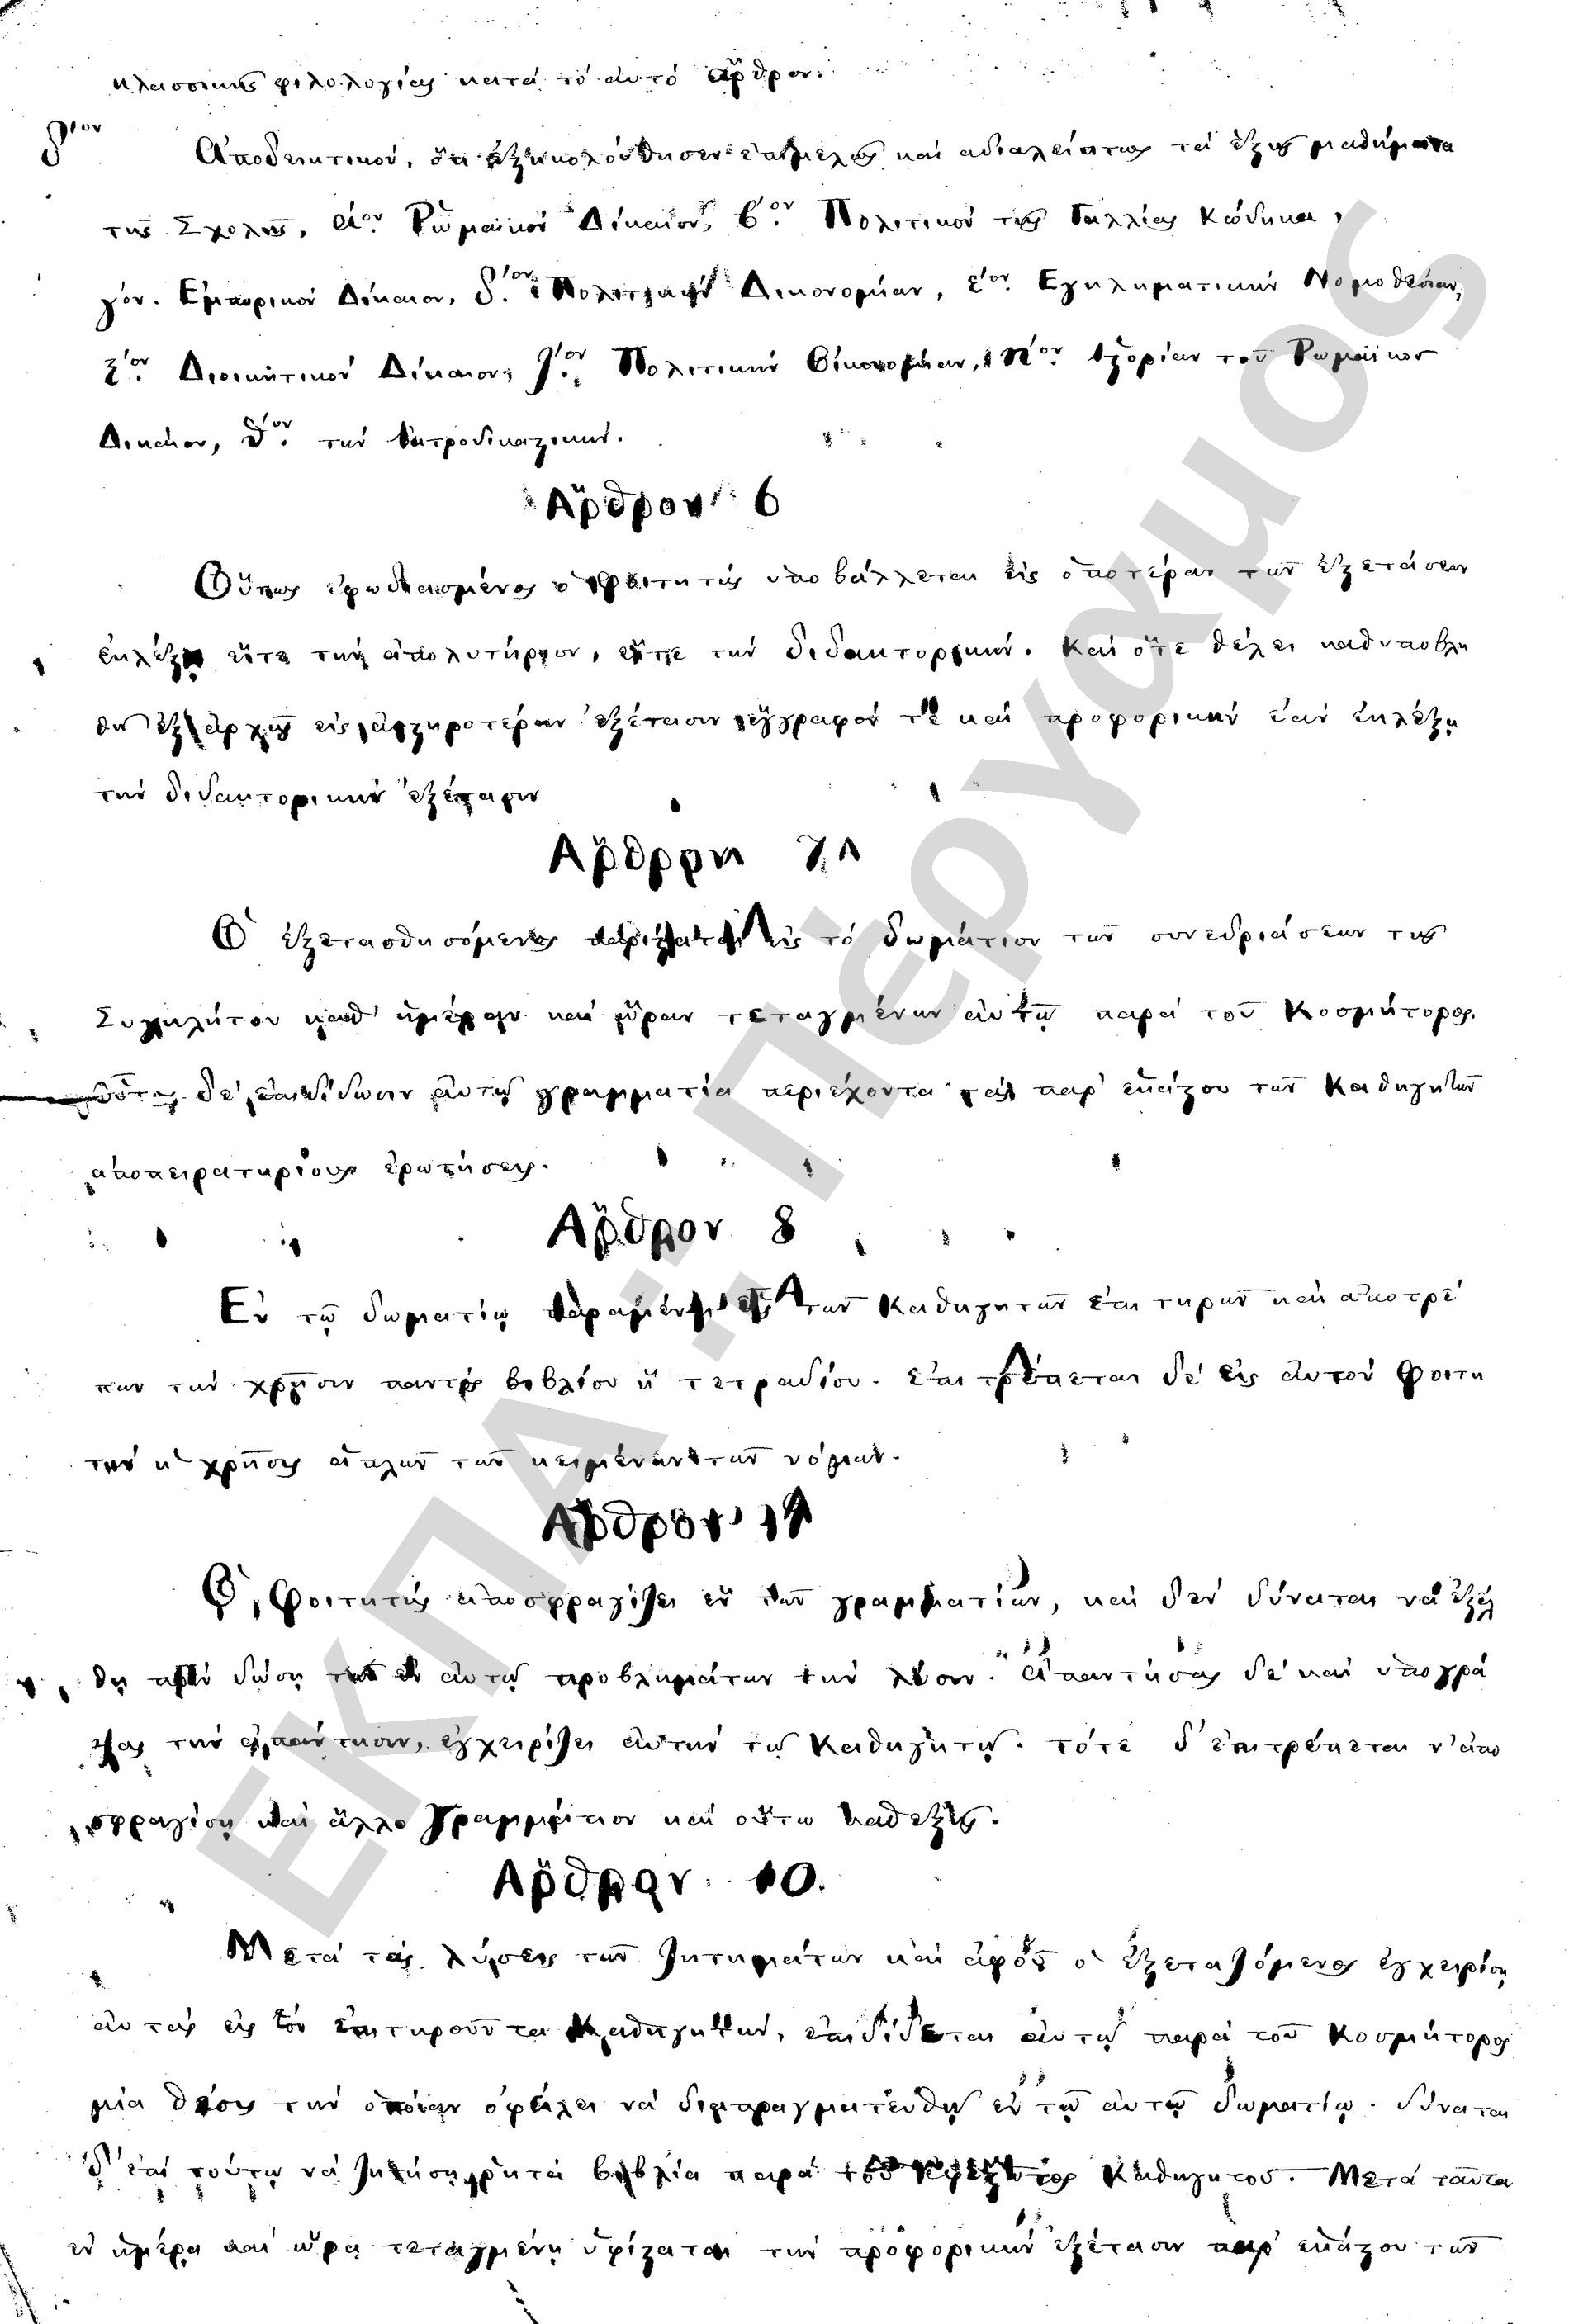 κλασσικῆς φιλολογίας κατά τό αυτό ἄρθρον.
δ'ον Ἀποδεικτικόν, ὅτι ἐξηκολούθησεν ἐπιμελῶς καί αδιαλείπτως τά ἑξῆς μαθήματα
τῆς Σχολῆς, α'ον Ρωμαϊκόν Δίκαιον, β'ον Πολιτικόν τῆς Γαλλίας Κώδηκα,
γ'ον. Εμπορικόν Δίκαιον, δ'ον Πολιτικήν Δικονομίαν, ε'ον Εγκληματικήν Νομοθεσίαν,
ς'ον Διοικητικόν Δίκαιον, ζ'ον Πολιτικήν Οἰκονομίαν, η'ον Ἱστορίαν τοῦ Ρωμαϊκοῦ
Δικαίου, θ'ον τήν Ἰατροδικαστικήν.
Ἄρθρον 6
Οὕτως ἐφωδιασμένος ὁ φοιτητής υποβάλλεται εἰς ὁποτέραν τῶν ἐξετάσεων
ἐκλέξῃ εἴτε τήν ἀπολυτήριον, εἴτε τήν διδακτορικήν. Καί ὅτε θέλει καθυποβλη
θῆ ἐξ ἀρχῆς εἰς αὐστηροτέραν ἐξέτασιν ἔγγραφόν τε καί προφορικήν ἐάν ἐκλέξῃ
τήν διδακτορικήν ἐξέτασιν
Ἄρθρον 7
Ὁ ἐξετασθησόμενος παρίσταται εἰς τό δωμάτιον τῶν συνεδριάσεων τῆς
Συγκλήτου καθ' ἡμέραν καί ὥραν τεταγμένην αὐτῷ παρά τοῦ Κοσμήτορος.
οὗτος δέ ἐπιδίδωσιν αὐτῷ γραμμάτια περιέχοντα τάς παρ' ἑκάστου τῶν Καθηγητῶν
αποπειρατηρίους ἐρωτήσεις.
Ἄρθρον 8
Ἐν τῷ δωματίῳ παραμένει εἷς τῶν Καθηγητῶν ἐπιτηρῶν καί αποτρέ
πων τήν χρῆσιν παντός βιβλίου ἤ τετραδίου. Επιτρέπεται δέ εἰς αὐτόν φοιτη
τήν ἡ χρῆσις ἁπλῶν τῶν κειμένων τῶν νόμων.
Ἄρθρον
Ὁ φοιτητής ἀποσφραγίζει ἕν τῶν γραμματίων, καί δέν δύναται νά ἐξέλ
θῃ πρίν δώσῃ τῶν ἐν αὐτῷ προβλημάτων τήν λύσιν. Ἀπαντήσας δέ καί υπογρά
ψας τήν ἀπάντησιν, ἐγχειρίζει αὐτήν τῷ Καθηγητῇ. τότε δ' ἐπιτρέπεται ν' ἀπο
σφραγίσῃ καί ἄλλο Γραμμάτιον καί οὕτω καθεξῆς.
Ἄρθρον 10.
Μετά τάς λύσεις τῶν ζητημάτων καί ἀφοῦ ὁ ἐξεταζόμενος ἐγχειρίσῃ
αὐτάς εἰς τόν ἐπιτηροῦντα Καθηγητήν, ἐπιδίδεται αὐτῷ παρά τοῦ Κοσμήτορος
μία θέσις τήν ὁποίαν ὀφείλει νά διαπραγματευθῇ ἐν τῷ αὐτῷ δωματίῳ. δύναται
δ' ἐπί τούτῳ νά ζητήσῃ ρητά βιβλία παρά τοῦ Καθηγητοῦ. Μετά ταῦτα
ἐν ἡμέρᾳ καί ὥρᾳ τεταγμένῃ ὑφίσταται τήν προφορικήν ἐξέτασιν παρ' ἑκάστου τῶν
ΕΚΠΑ.: Πέργαμος